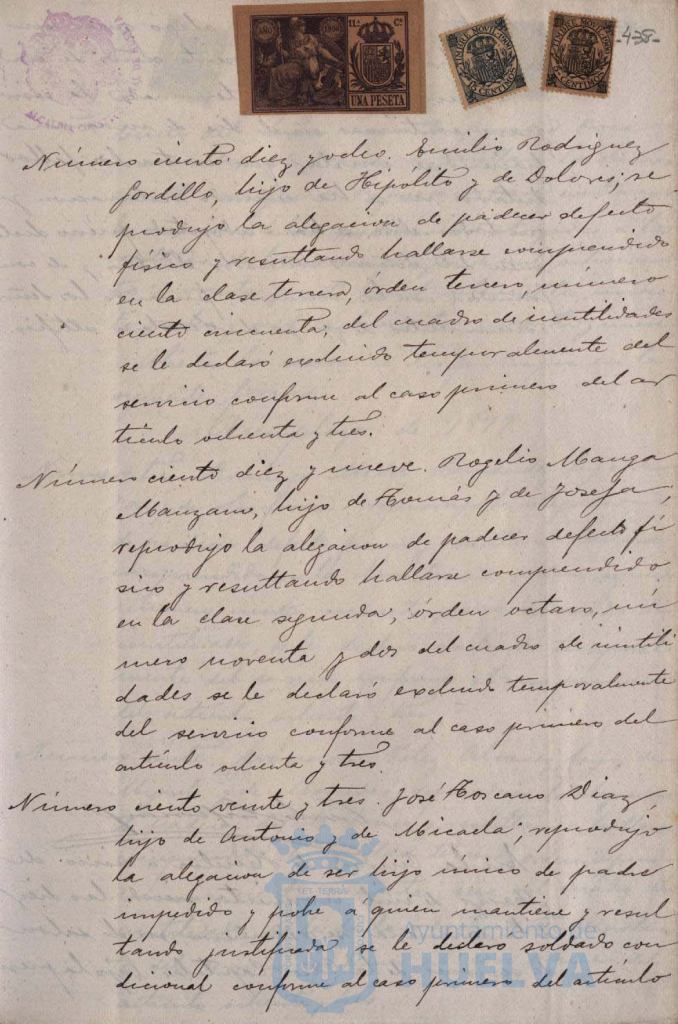 AÑO 1900
11.ª Cº
UNA PESETA
TIMBRE MOVIL 1900
CENTIMOS
TIMBRE MOVIL 1900
CENTIMOS
-438-
Número ciento diez y ocho. Emilio Rodriguez
Gordillo, hijo de Hipólito y de Dolores; re
produjo la alegacion de padecer defecto
físico y resultando hallarse comprendido
en la clase tercera, órden tercero, número
ciento cincuenta, del cuadro de inutilidades
se le declaró excluido temporalmente del
servicio conforme al caso primero del ar
tículo ochenta y tres.
Número ciento diez y nueve. Rogelio Manga
Manzano, hijo de Tomás y de Josefa;
reprodujo la alegacion de padecer defecto fí
sico y resultando hallarse comprendido
en la clase segunda, órden octavo, nú
mero noventa y dos del cuadro de inutili
dades se le declaró excluido temporalmente
del servicio conforme al caso primero del
artículo ochenta y tres.
Número ciento veinte y tres. José Toscano Diaz,
hijo de Antonio y de Micaela; reprodujo
la alegacion de ser hijo único de padre
impedido y pobre á quien mantiene y resul
tando justificada se le declaro soldado con
dicional conforme al caso primero del artículo
Ayuntamiento de
HUELVA